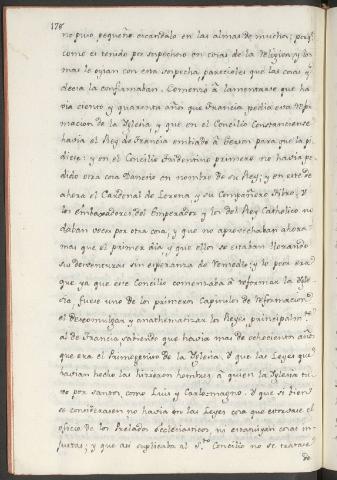 178
no puso pequeño escandalo en las almas de muchos; porq.
como es tenido por sospechoso en cosas de la Religion, y los
mas le oyian con esta sospecha, pareciales que las cosas q.
decia la confirmaban. Comenzó à lamentarse que ha
via ciento y quarenta años que Francia pedia esta refor
macion de la Yglesia, y que en el Concilio Constanciense
havia el Rey de Francia embiado à Gerson para que la pi
diese: y en el Concilio Tridentino primero no havia pe
dido otra cosa Danesio en nombre de su Rey; y en este de
ahora el Cardenal de Lorena, y su Compañero Fibro; Y
los Embaxadores del Emperador y los del Rey Catholico no
daban voces por otra cosa, y que no aprovechaban ahora
mas que el primer dia y que ellos se estaban llorando
su desventuras sin esperanza de remedio; y lo peor era
que ya que este Concilio comenzaba à reformar la Ygle
sia, fuese uno de los primeros Capitulos de reformacion
el descomulgar y anathematizar los Reyes, principalm.te
al de Francia, sabiendo que havia mas de ochocientos años
que era el Primogenito de la Yglesia. Y que las Leyes que
havian hecho las hicieron hombres à quien la Yglesia tu
vo por santos, como Luis y Carlo magno. Y que si bien
se considerasen no havia en las Leyes cosa que estorvase el
oficio de los Prelados Ecclesiasticos, ni estatuyen cosas in
justas; y que asi suplicaba al S.to Concilio no se tratase
de